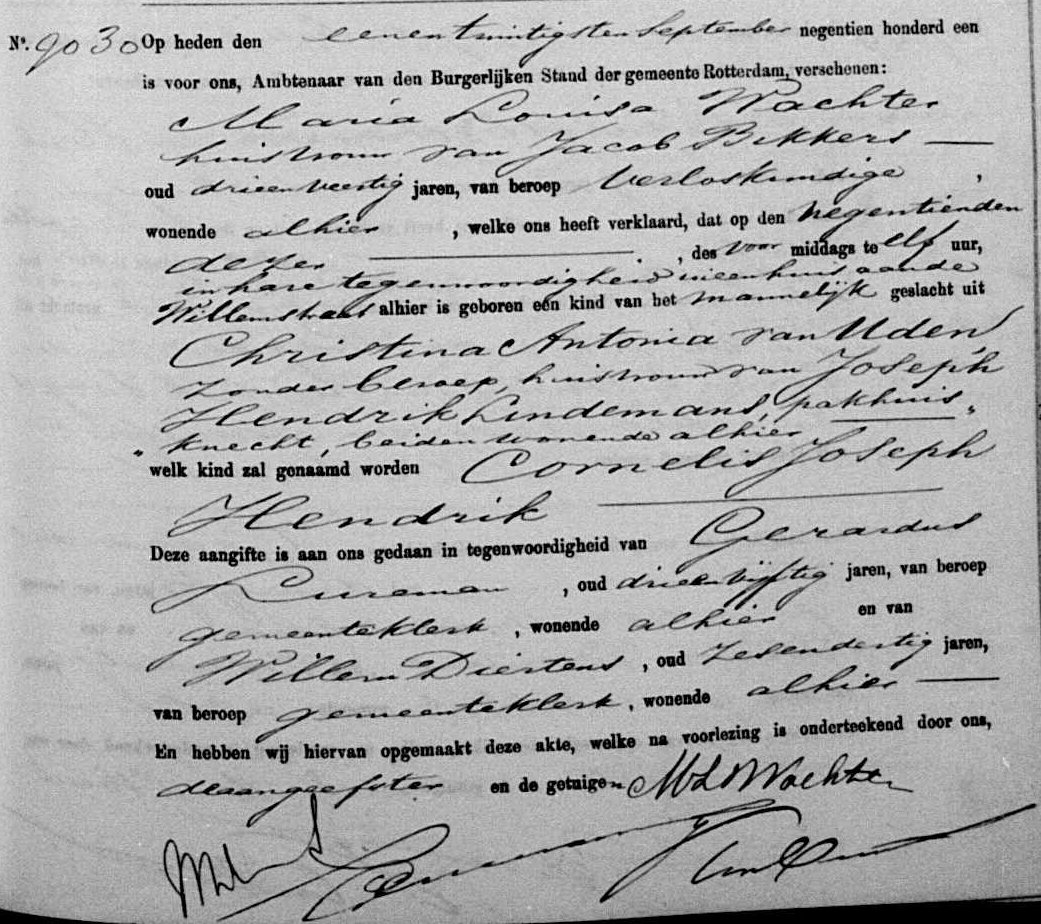 No. 9030 Op heden den eenentwintigsten September negentien honderd een
is voor ons, Ambtenaar van den Burgerlijken Stand der gemeente Rotterdam, verschenen:
Maria Louisa Wachter
huisvrouw van Jacob Bekkers —
oud drieenveertig jaren, van beroep Verloskundige ,
wonende alhier , welke ons heeft verklaard, dat op den negentienden
dezer — , des voor middags te elf uur,
in hare tegenwoordigheid in een huis aan de
Willemstraat alhier is geboren één kind van het mannelijk geslacht uit
Christina Antonia van Uden,
zonder beroep, huisvrouw van Joseph
Hendrik Lindemans, pakhuis„
„knecht, beiden wonende alhier
welk kind zal genaamd worden Cornelis Joseph
Hendrik —
Deze aangifte is aan ons gedaan in tegenwoordigheid van Gerardus
, oud drieenvijftig jaren, van beroep
gemeenteklerk , wonende alhier en van
Willem Diertens , oud zesendertig jaren,
van beroep gemeenteklerk , wonende alhier —
En hebben wij hiervan opgemaakt deze akte, welke na voorlezing is onderteekend door ons,
de aangeefster en de getuigen MLWachter